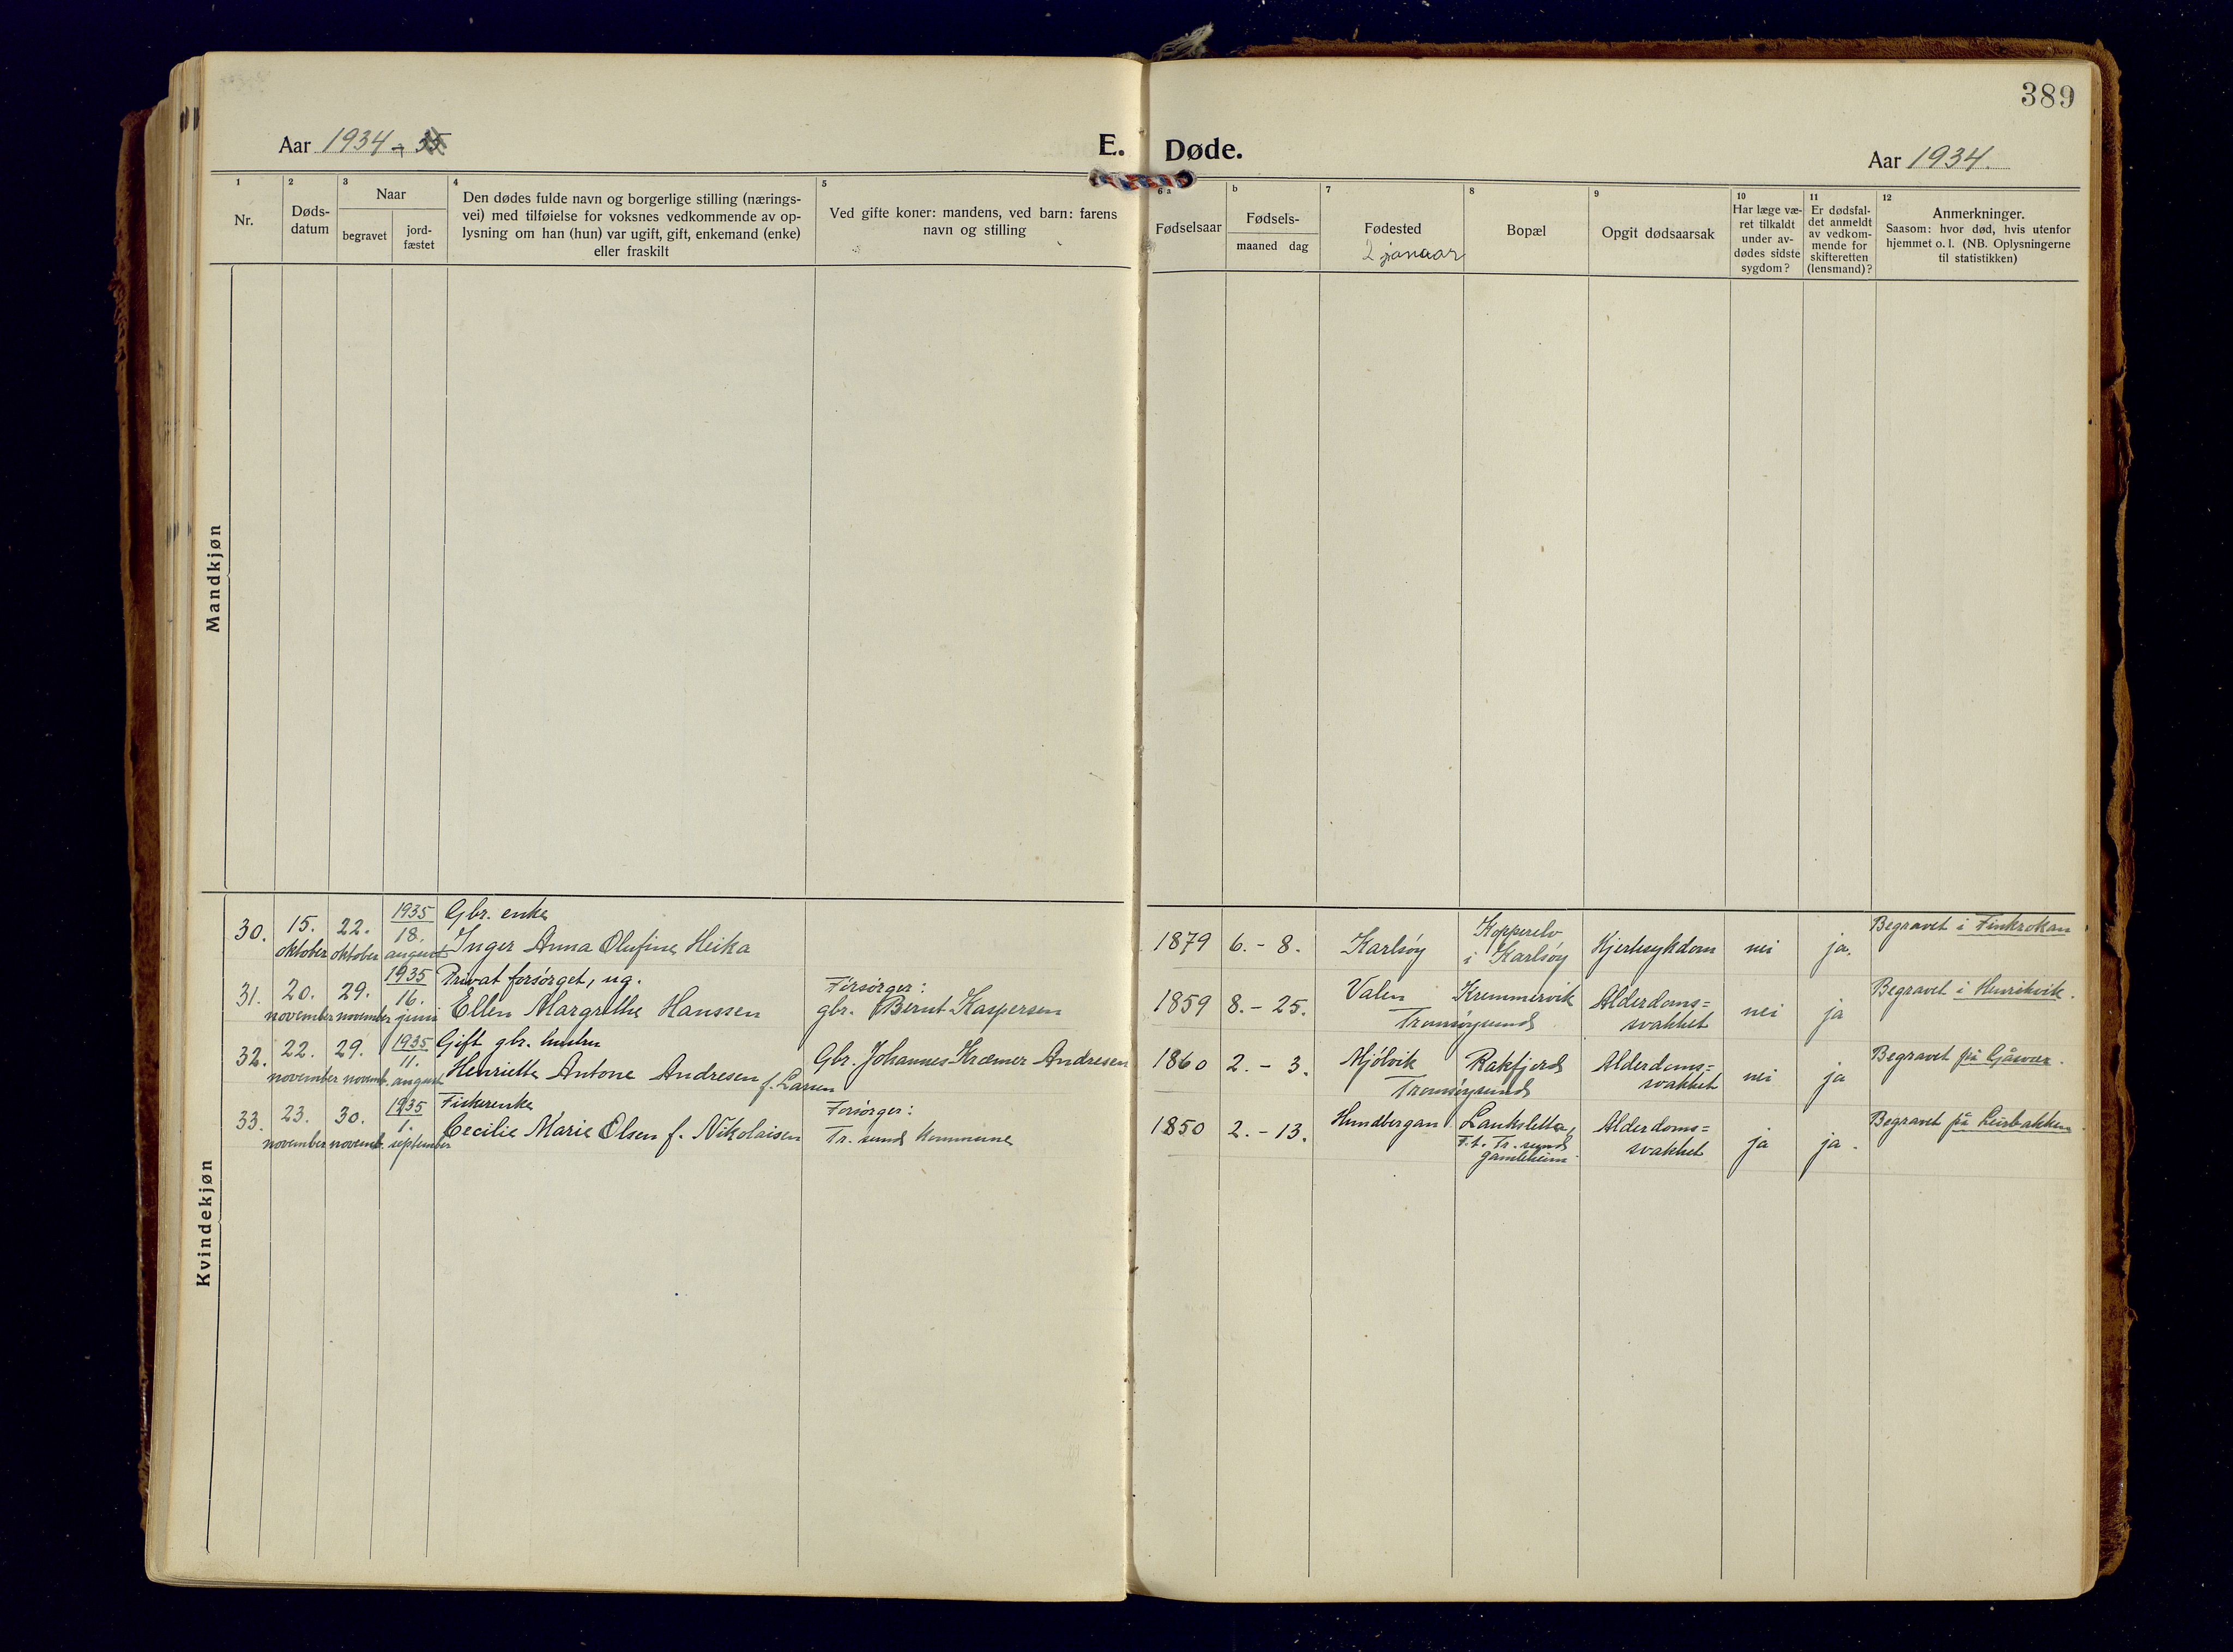 389
Aar 1934 - 35
E. Døde.
Aar 1934.
1
Nr.
2
Døds-
datum
3
Naar
begravet
jord-
fæstet
4
Den dødes fulde navn og borgerlige stilling (nærings-
vei) med tilføielse for voksnes vedkommende av op-
lysning om han (hun) var ugift, gift, enkemand (enke)
eller fraskilt
5
Ved gifte koner: mandens, ved barn: farens
navn og stilling
6 a
Fødselsaar
b
Fødsels-
maaned dag
7
Fødested
2 januar
8
Bopæl
9
Opgit dødsaarsak
10
Har læge væ-
ret tilkaldt
under av-
dødes sidste
sygdom?
11
Er dødsfal-
det anmeldt
av vedkom-
mende for
skifteretten
(lensmand)?
12
Anmerkninger.
Saasom: hvor død, hvis utenfor
hjemmet o. l. (NB. Oplysningerne
til statistikken)
Mandkjøn
Kvindekjøn
30.
15.
oktober
22.
oktober
1935
18.
august
Gbr. enke
Inger Anna Olufine Heika
1879
6. - 8.
Karlsøy
Kopperelv
i Karlsøy
Hjertesykdom
nei
ja.
Begravet i Finkrokan
31.
20.
november
29.
november
1935
16.
juni
Privat forsørget, ug.
Ellen Margrethe Hanssen
Forsørger:
gbr. Bernt Kaspersen
1859
8. - 25.
Valen
Kremmervik
Tromsøysund
Alderdoms=
svakhet
nei
ja
Begravet i Henrikvik.
32.
22.
november
29.
novemb.
1935
11.
august
Gift gbr. hustru
Henriette Antone Andresen f. Larsen
Gbr. Johannes Kræmer Andresen
1860
2. - 3.
Mjölvik
Rakfjord
Tromsøysund
Alderdoms=
svakhet
nei
ja
Begravet på Gåsvær.
33.
23.
november
30.
novemb.
1935
1.
september
Fiskerenke
Cecilie Marie Olsen f. Nikolaisen
Forsørger:
Tr. sund kommune
1850
2. - 13.
Hundbergan
Lanksletta,
F. t. Tr. sund
gamleheim
Alderdoms=
svakhet
ja
ja.
Begravet på Leirbakken